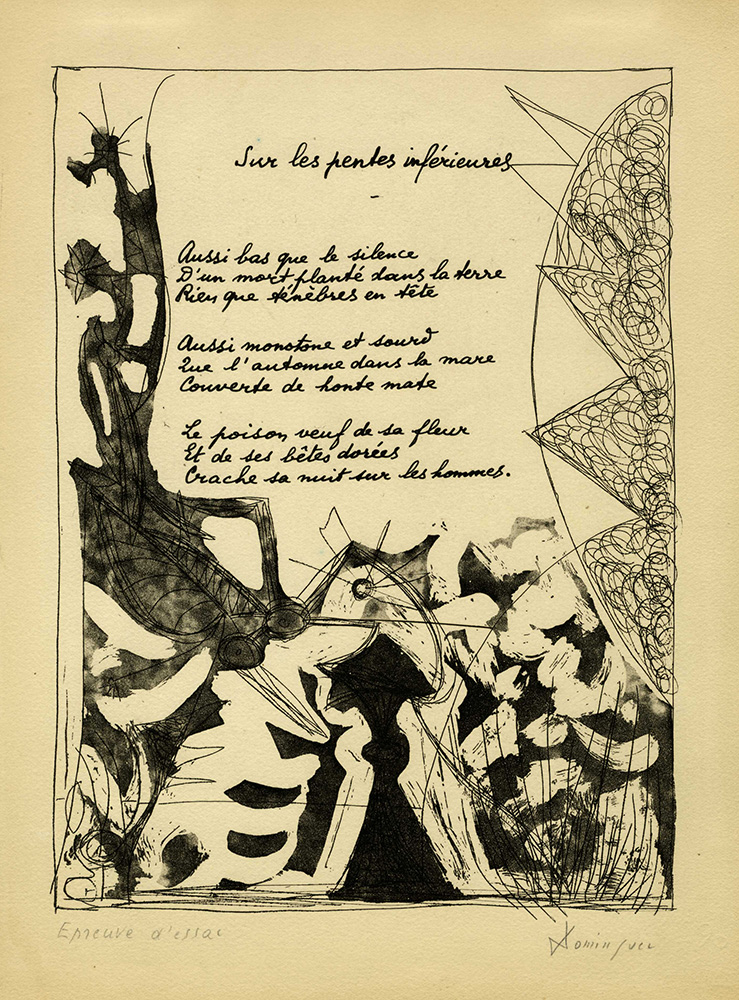 Sur les pentes inférieures
-
Aussi bas que le silence
D'un mort planté dans la terre
Rien que ténèbres en tête
Aussi monotone et sourd
Que l'automne dans la mare
Couverte de honte mate
Le poison veuf de sa fleur
Et de ses bêtes dorées
Crache sa nuit sur les hommes.
Epreuve d'essai
Dominguez